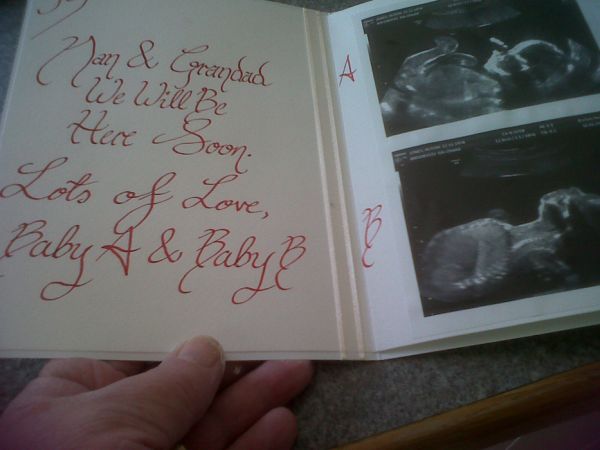 Nan & Grandad
We Will Be
Here Soon.
Lots of Love,
Baby A & Baby B
A
B